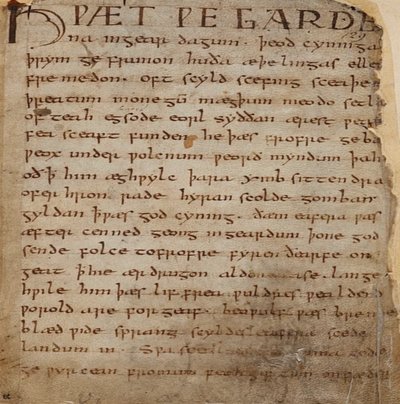 HǷÆT ǷE GARDE
na ingear dagum. þeod cyninga
þrym ge frunon huða æþelingas elle
fremedon. oft scyld scefing sceaþe
þreatum monegū mægþum meodo setla
of teah egsode eorl syððan ærest ƿear
fea sceaft funden he þæs frofre geba
ƿeox under ƿolcnum ƿeorð myndum þah
oð þ him æghƿylc þara ymb sittendra
ofer hron rade hyran scolde gomban
gyldan þ ƿæs god cyning. ðæm eafera ƿæs
æfter cenned geong ingeardum þone god
sende folce tofrofre fyren ðearfe on
geat þ hie ær drugon aldor ase. lange
hƿile him þæs lif frea ƿuldres ƿealdend
ƿorold are for geaf. beoƿulf ƿæs breme
blæd ƿide sprang scyldes eafera scede
landum in. Sƿa uma gode
ge ƿyrcean fromum feoh giftum. on fæder